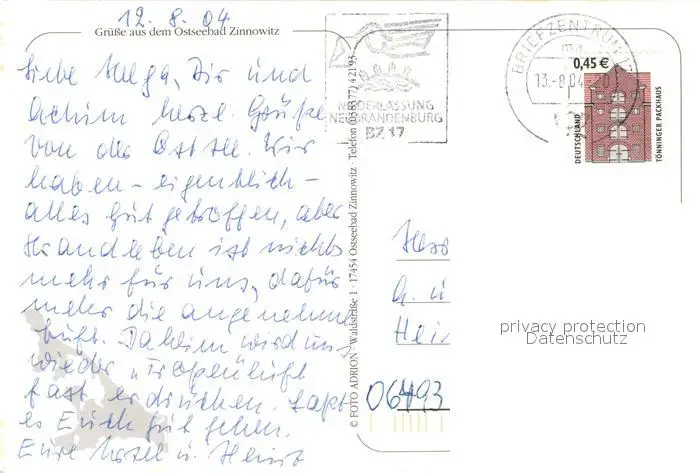 12. 8. 04
Grüße aus dem Ostseebad Zinnowitz
Liebe Helga, Dir und
Achim herzl. Grüße
von der Ostsee. Wir
haben – eigentlich –
alles gut getroffen, aber
Strandleben ist nichts
mehr für uns, dafür
mehr die angenehme
Luft. Daheim wird uns
wieder „Tropenluft
fast erdrücken. Laßt
es Euch gut gehen.
Eure u. Heinz
© FOTO ADRION · Waldstraße 1 · 17454 Ostseebad Zinnowitz · Telefon (038377) 42193
NIEDERLASSUNG
NEUBRANDENBURG
BZ 17
BRIEFZENTRUM 17
ma
13.-8.04
0,45 €
DEUTSCHLAND
TÖNNINGER PACKHAUS
06493
privacy protection
Datenschutz